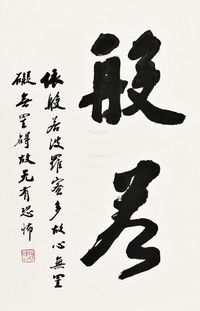 般若
依般若波羅蜜多故心無罣
礙無罣碍故无有恐怖